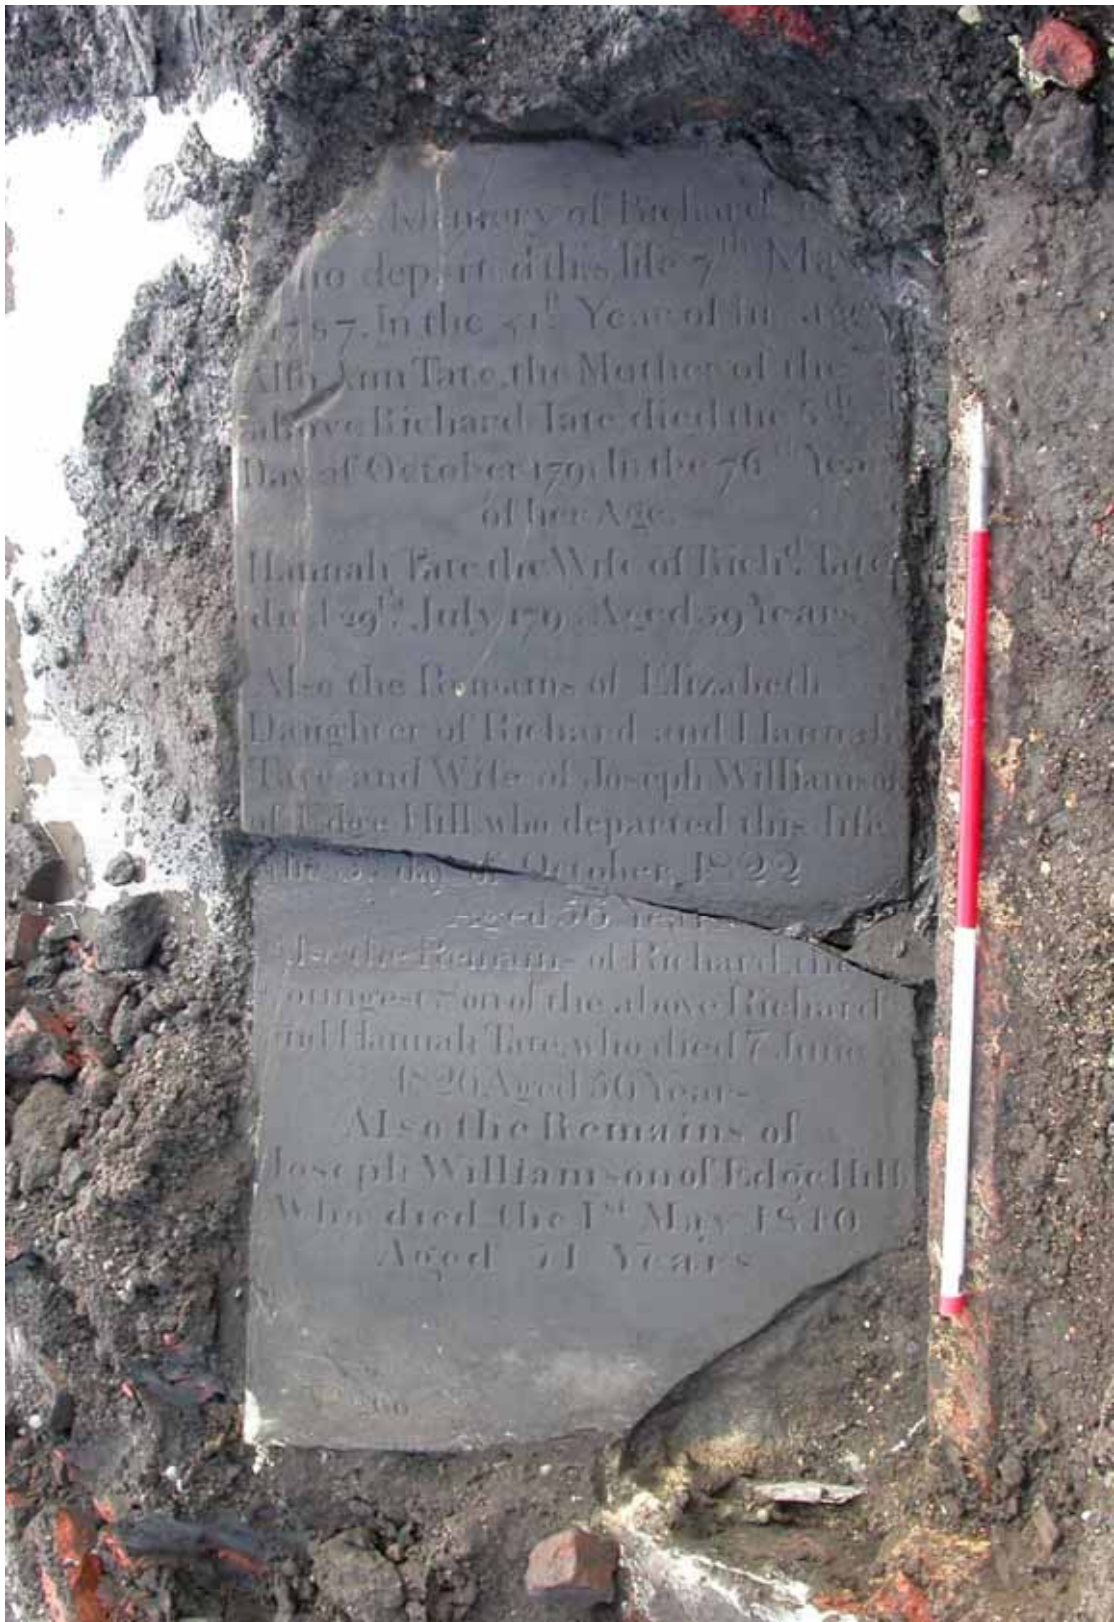 Memory of Richard
departed this life 7th May
1787. In the 51st Year of his age
Also Ann Tate, the Mother of the
above Richard Tate died the 5th
Day of October 1791 In the 76th Year
of her Age.
Hannah Tate the Wife of Richd. Tate
died 29th. July Aged 59 Years
Also the Remains of Elizabeth
Daughter of Richard and Hannah
Tate and Wife of Joseph Williamson
of Edge Hill who departed this life
the day of October, 1822
Aged 56 Years
Also the Remains of Richard the
Youngest Son of the above Richard
and Hannah Tate, who died 7 June
1826 Aged 56 Years
Also the Remains of
Joseph Williamson of Edge Hill
Who died the 1st May 1840
Aged 71 Years
60